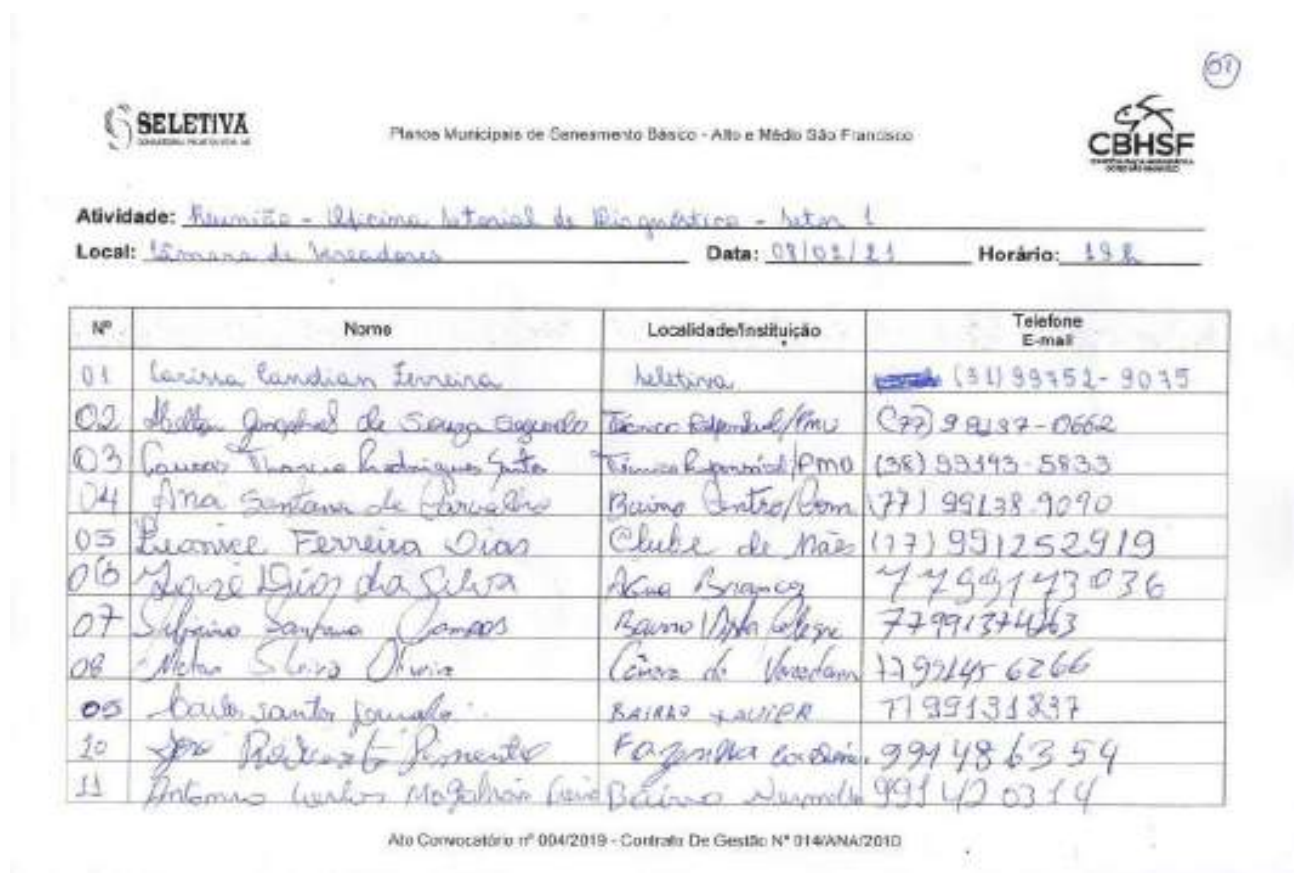 01
SELETIVA
Planos Municipais de Saneamento Básico - Alto e Médio São Francisco
CBHSF
Atividade: Reunião - Oficina Setorial de Diagnóstico - Setor 1
Local: Câmara de Vereadores Data: 08/02/21 Horário: 19h
Nº Nome Localidade/Instituição Telefone
E-mail
01 Larissa Candian Ferreira Seletiva (31) 99752-9075
02 de Souza Segundo Técnico /PMU (77) 99137-0662
03 Rodrigues Técnica /PMU (38) 99193-5833
04 Ana Santana de Carvalho Bairro Centro/Com (77) 99138.9090
05 Leonice Ferreira Dias Clube de Mães (77) 991252919
06 José Dias da Silva Agua Branca 7799173036
07 Santana Campos Bairro 
08 Silva Oliveira de 77991456266
09 Carlos santos BAIRRO XAVIER 7799131837
10 Fazenda 991486354
11 Antonio Carlos Magalhães Bairro 991420314
Ato Convocatório nº 004/2019 - Contrato De Gestão Nº 014/ANA/2010